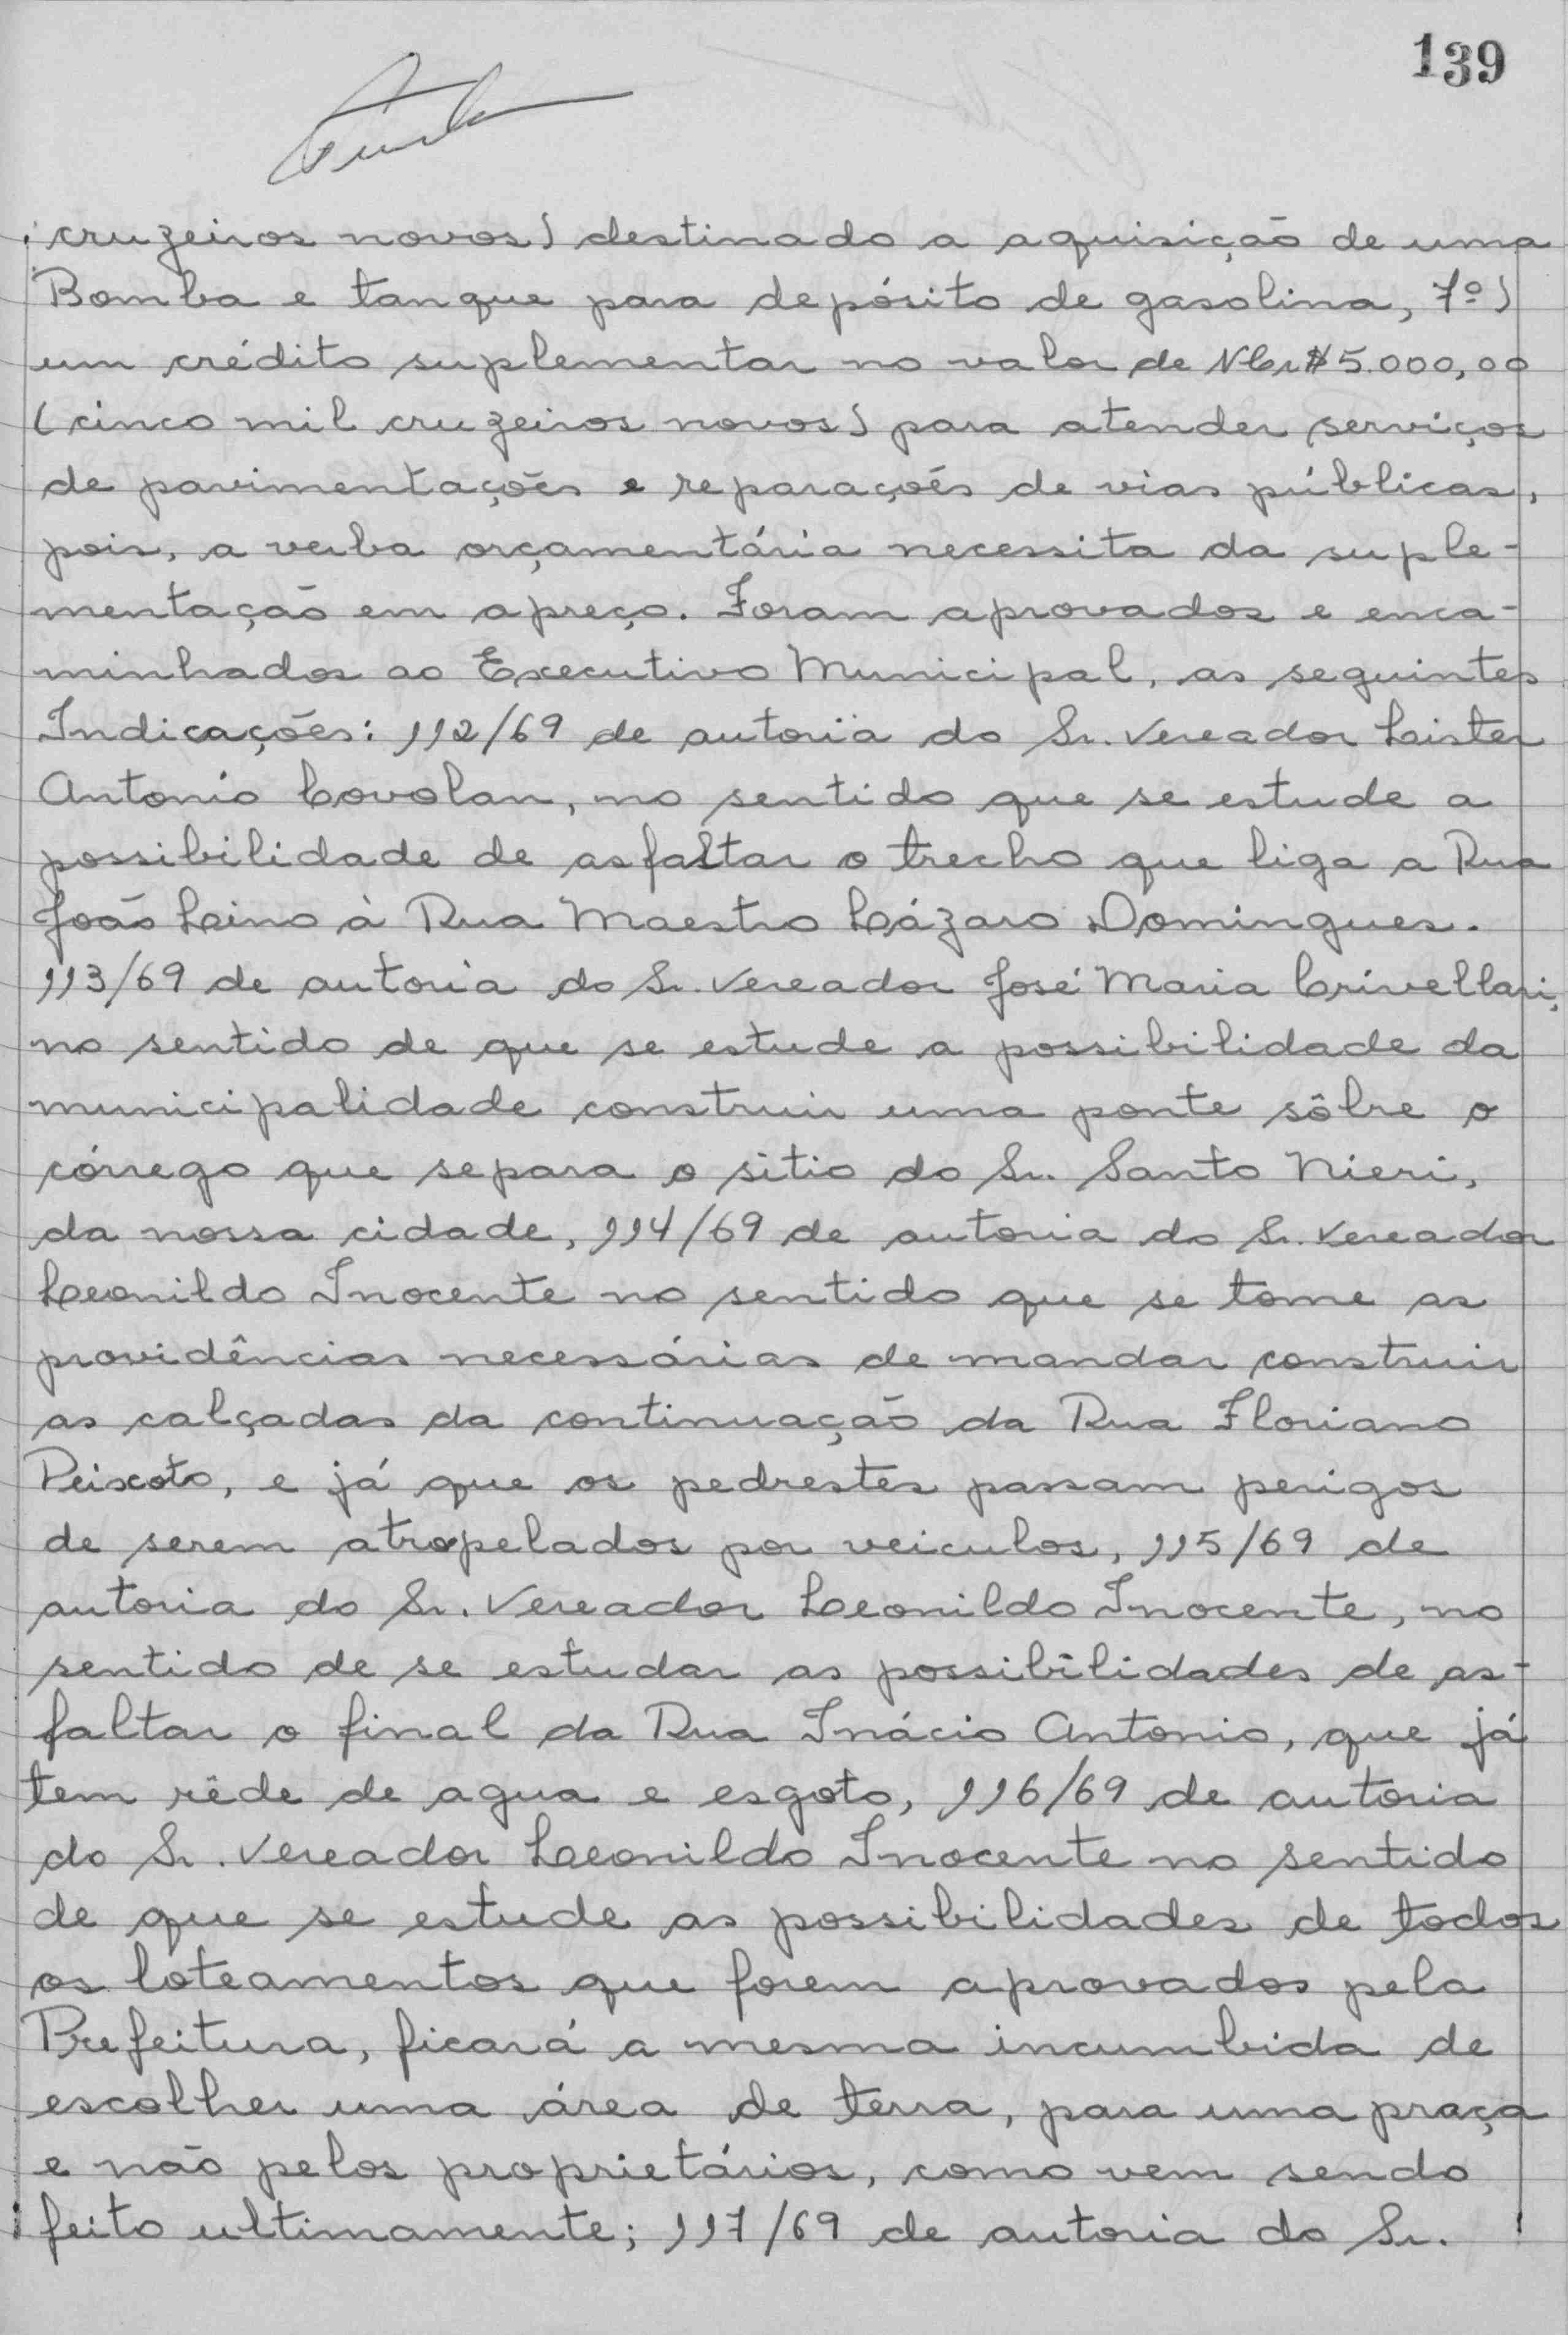 139
cruzeiros novos) destinado a aquisição de uma
Bomba e tanque para depósito de gasolina, 7º)
um crédito suplementar no valor de NCr$ 5.000,00
(cinco mil cruzeiros novos) para atender serviços
de pavimentações e reparações de vias públicas,
pois, a verba orçamentária necessita da suple-
mentação em apreço. Foram aprovados e enca-
minhados ao Executivo Municipal, as seguintes
Indicações: 112/69 de autoria do Sr. Vereador Lister
Antonio Covolan, no sentido que se estude a
possibilidade de asfaltar o trecho que liga a Rua
João Lino à Rua Maestro Lázaro Domingues.
113/69 de autoria do Sr. Vereador José Maria Crivellari,
no sentido de que se estude a possibilidade da
municipalidade construir uma ponte sôbre o
córrego que separa o sitio do Sr. Santo Nieri,
da nossa cidade, 114/69 de autoria do Sr. Vereador
Leonildo Inocente no sentido que se tome as
providências necessárias de mandar construir
as calçadas da continuação da Rua Floriano
Peixoto, e já que os pedrestes passam perigos
de serem atropelados por veiculos, 115/69 de
autoria do Sr. Vereador Leonildo Inocente, no
sentido de se estudar as possibilidades de as-
faltar o final da Rua Inácio Antonio, que já
tem rêde de agua e esgoto, 116/69 de autoria
do Sr. Vereador Leonildo Inocente no sentido
de que se estude as possibilidades de todos
os loteamentos que forem aprovados pela
Prefeitura, ficará a mesma incumbida de
escolher uma área de terra, para uma praça
e não pelos proprietários, como vem sendo
feito ultimamente; 117/69 de autoria do Sr.